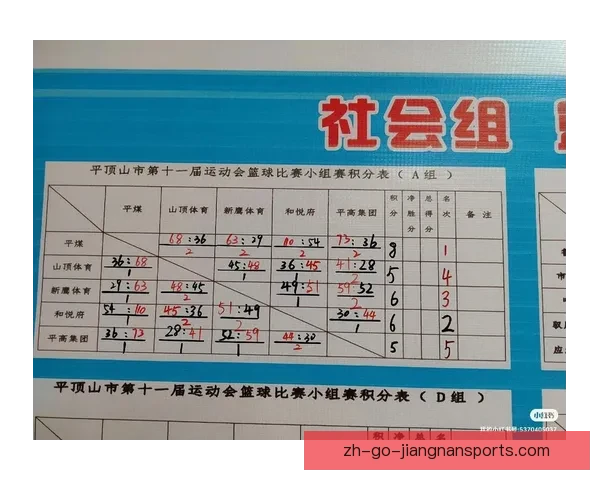 社会组
平顶山市第十一届运动会篮球比赛小组赛积分表（A组）
平煤 山顶体育 新鹰体育 和悦府 平高集团 积分 净胜分 总得分 名次 备注
平煤 68:36 2 63:29 2 110:54 2 73:36 2 8 1
山顶体育 36:68 1 45:48 1 36:45 1 41:28 2 5 4
新鹰体育 29:63 1 48:45 2 49:51 1 59:52 2 6 3
和悦府 54:110 1 45:36 2 51:49 2 30:44 1 6 2
平高集团 36:73 1 28:41 1 52:59 1 44:30 2 5 5
平顶山市第十一届运动会篮球比赛小组赛积分表（D组）
小红书
zh-go-jiangnansports.com